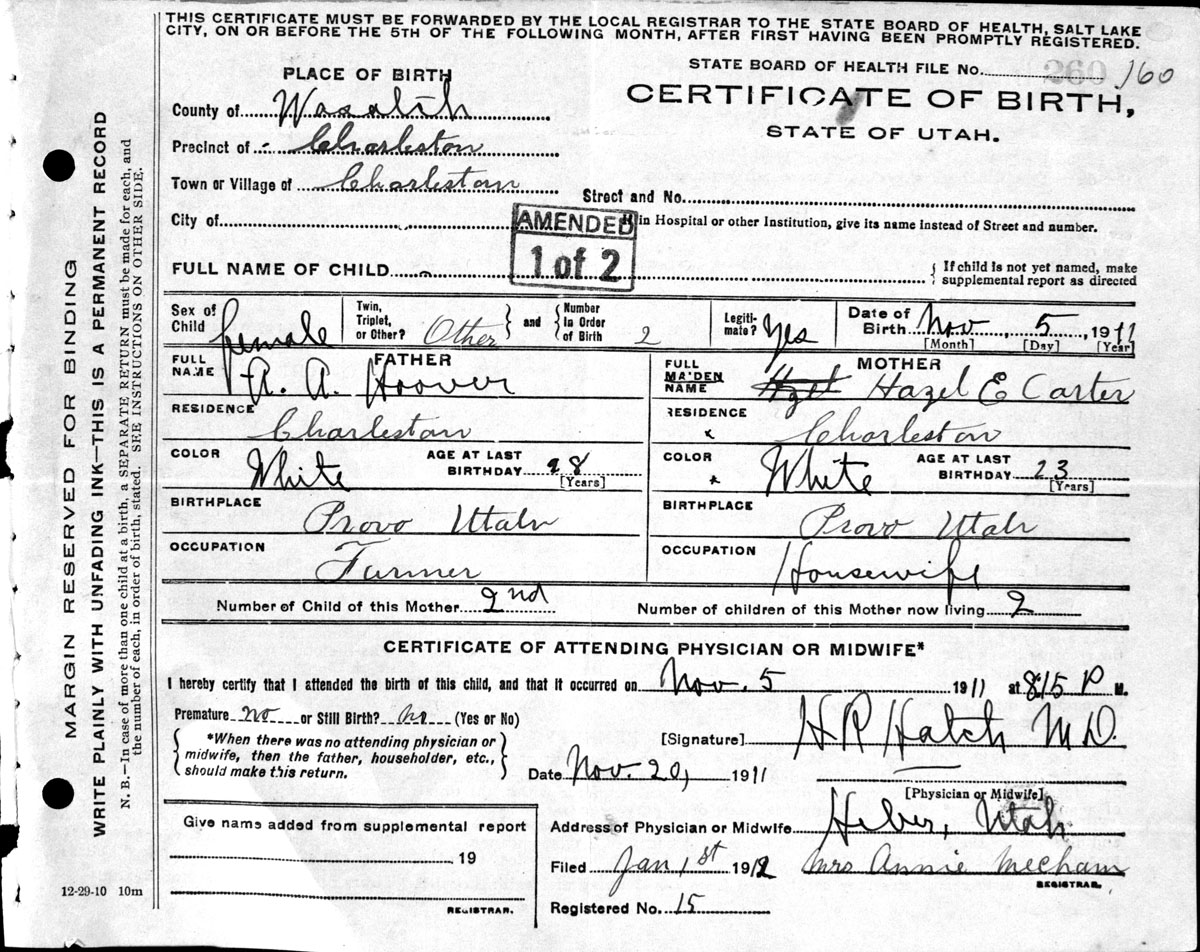 THIS CERTIFICATE MUST BE FORWARDED BY THE LOCAL REGISTRAR TO THE STATE BOARD OF HEALTH, SALT LAKE
CITY, ON OR BEFORE THE 5TH OF THE FOLLOWING MONTH, AFTER FIRST HAVING BEEN PROMPTLY REGISTERED.
STATE BOARD OF HEALTH FILE No. 260 160
PLACE OF BIRTH
CERTIFICATE OF BIRTH,
STATE OF UTAH.
County of Wasatch
Precinct of Charleston
Town or Village of Charleston
Street and No.
City of
in Hospital or other Institution, give its name instead of Street and number.
AMENDED
1 of 2
FULL NAME OF CHILD
If child is not yet named, make
supplemental report as directed
Sex of Child female
Twin, Triplet, or Other? Other and Number In Order of Birth 2
Legitimate? Yes
Date of Birth Nov 5 1911
[Month] [Day] [Year]
FATHER
FULL NAME A. A. Hoover
RESIDENCE Charleston
COLOR White AGE AT LAST BIRTHDAY 28 [Years]
BIRTHPLACE Provo Utah
OCCUPATION Farmer
MOTHER
FULL MAIDEN NAME Hazel E Carter
RESIDENCE Charleston
COLOR White AGE AT LAST BIRTHDAY 23 [Years]
BIRTHPLACE Provo Utah
OCCUPATION Housewife
Number of Child of this Mother 2nd Number of children of this Mother now living 2
CERTIFICATE OF ATTENDING PHYSICIAN OR MIDWIFE*
I hereby certify that I attended the birth of this child, and that it occurred on Nov. 5 1911 at 8:15 P M.
Premature no or Still Birth? no (Yes or No)
*When there was no attending physician or
midwife, then the father, householder, etc.,
should make this return.
[Signature] H R Hatch M.D.
Date Nov. 20, 1911
[Physician or Midwife]
Give name added from supplemental report
19
REGISTRAR.
Address of Physician or Midwife Heber, Utah
Filed Jan 1st 1912 Mrs Annie Mecham
REGISTRAR.
Registered No. 15
12-29-10 10m
MARGIN RESERVED FOR BINDING
WRITE PLAINLY WITH UNFADING INK—THIS IS A PERMANENT RECORD
N. B.—In case of more than one child at a birth, a SEPARATE RETURN must be made for each, and
the number of each, in order of birth, stated. SEE INSTRUCTIONS ON OTHER SIDE.